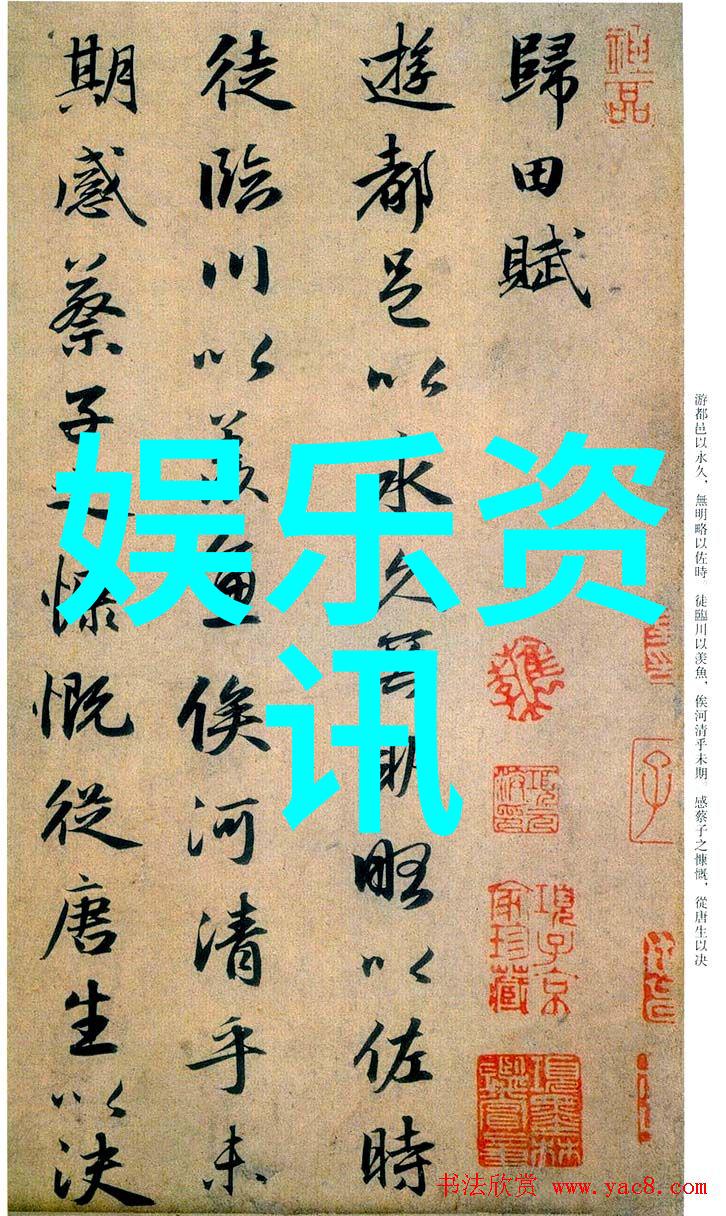 游都邑以永久，無明略以佐時。徒臨川以羡魚，俟河清乎未期。感蔡子之慷慨，從唐生以决
神品
歸田賦
項子京家珍藏
遊都邑以永久無明略以佐時
徒臨川以羡魚俟河清乎未
期感蔡子之慷慨從唐生以決
娱乐资
讯
书法欣赏 www.yac8.com